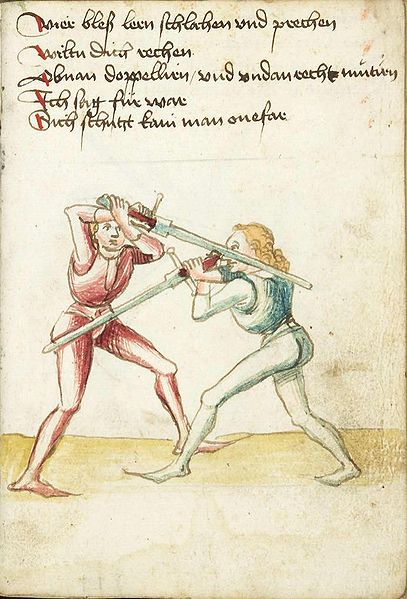 Vier bleß lern schlachen vnd prechen
wiltu dich rechen
Obnan doppellier / vnd vndan recht mutiern
Ich sag für war
Sich schutzt kain man one far